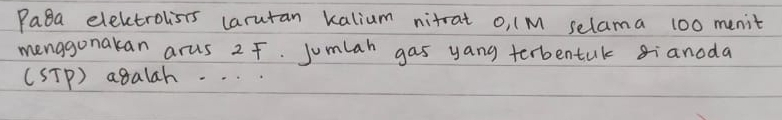 Pada elektrolisis larutan kalium nitrat 0,1 M selama 100 menit
menggunakan arus 2 F. Jumlah gas yang terbentuk di anoda
(STP) adalah . . . .